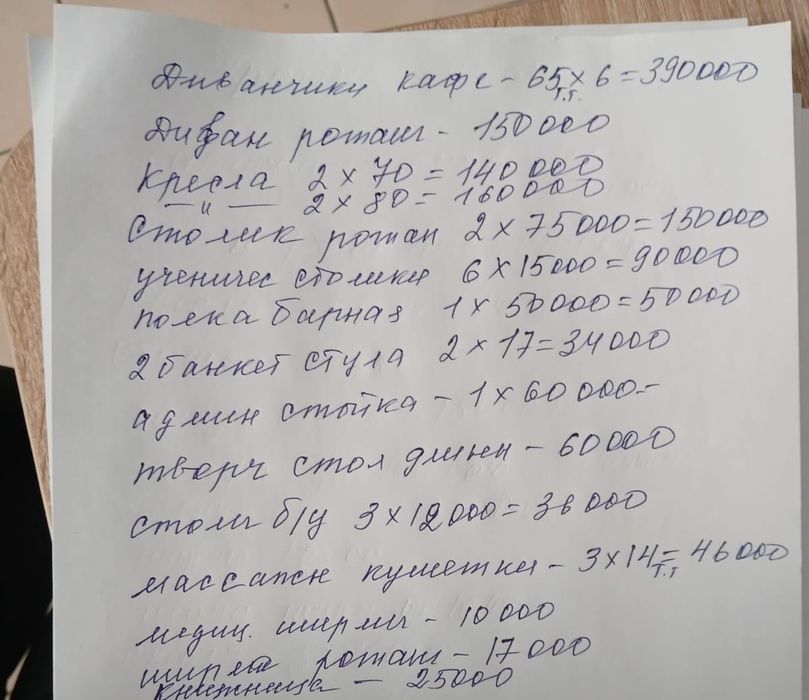 Диванчики кафе - 65 т.т. х 6 = 390000
Диван роташ - 150000
Кресла 2 х 70 = 140 000
— и — 2 х 80 = 160 000
Столик ротан 2 х 75000 = 150000
ученичес столики 6 х 15000 = 90000
полка барная 1 х 50000 = 50000
2 банкет стула 2 х 17 = 34000
админ стойка - 1 х 60 000.-
творч стол длинн - 60000
столы б/у 3 х 12 000 = 36 000
массажн кушетки - 3 х 14 т.т = 46 000
медиц. ширмы - 10 000
ширма роташ - 17 000
книжница - 25000